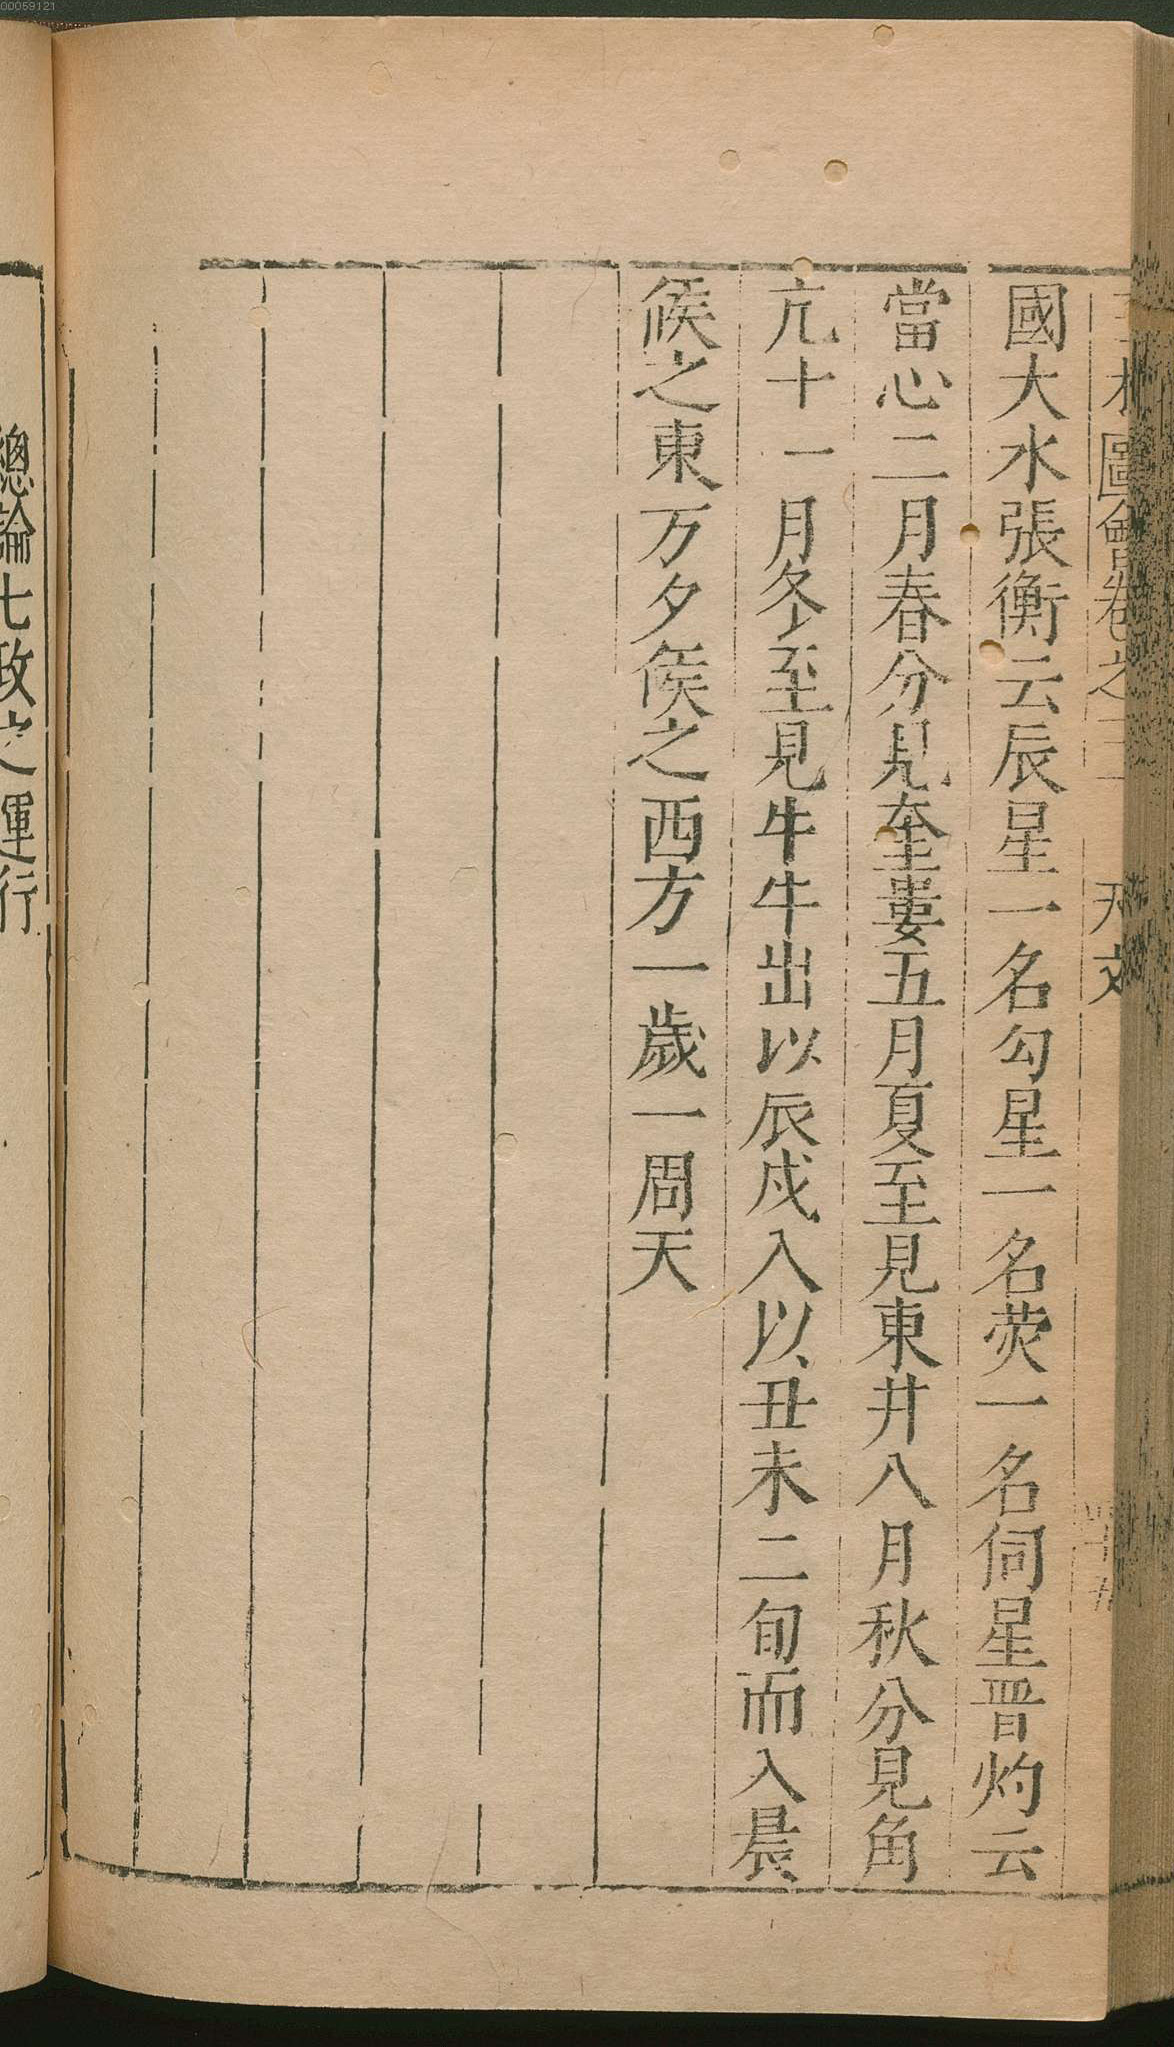 圖會卷之三 天文
國大水張衡云辰星一名勾星一名熒一名伺星晋灼云
當心二月春分見奎婁五月夏至見東井八月秋分見角
亢十一月冬至見牛牛出以辰戌入以丑未二旬而入晨
候之東万夕候之西方一歲一周天
總論七政之運行
00059121